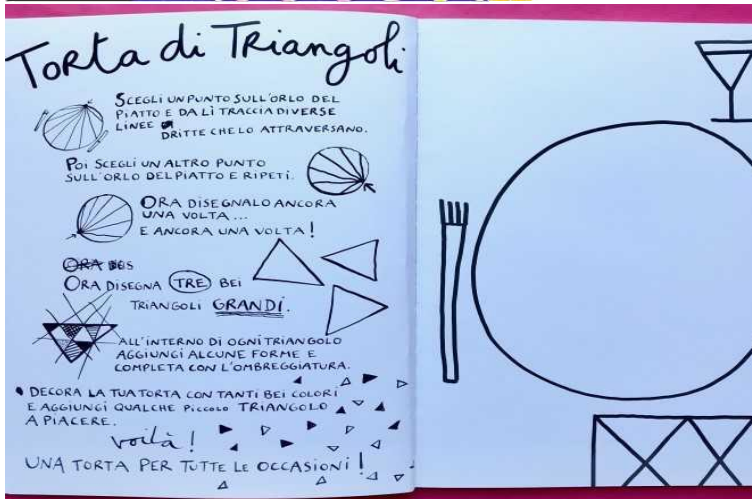 Torta di Triangoli
SCEGLI UN PUNTO SULL'ORLO DEL
PIATTO E DA LÌ TRACCIA DIVERSE
LINEE
DRITTE CHE LO ATTRAVERSANO.
POI SCEGLI UN ALTRO PUNTO
SULL'ORLO DEL PIATTO E RIPETI.
ORA DISEGNALO ANCORA
UNA VOLTA...
E ANCORA UNA VOLTA!
ORA DIS
ORA DISEGNA TRE BEI
TRIANGOLI GRANDI.
ALL'INTERNO DI OGNI TRIANGOLO
AGGIUNGI ALCUNE FORME E
COMPLETA CON L'OMBREGGIATURA.
• DECORA LA TUA TORTA CON TANTI BEI COLORI
E AGGIUNGI QUALCHE PICCOLO TRIANGOLO
A PIACERE.
voilà!
UNA TORTA PER TUTTE LE OCCASIONI!